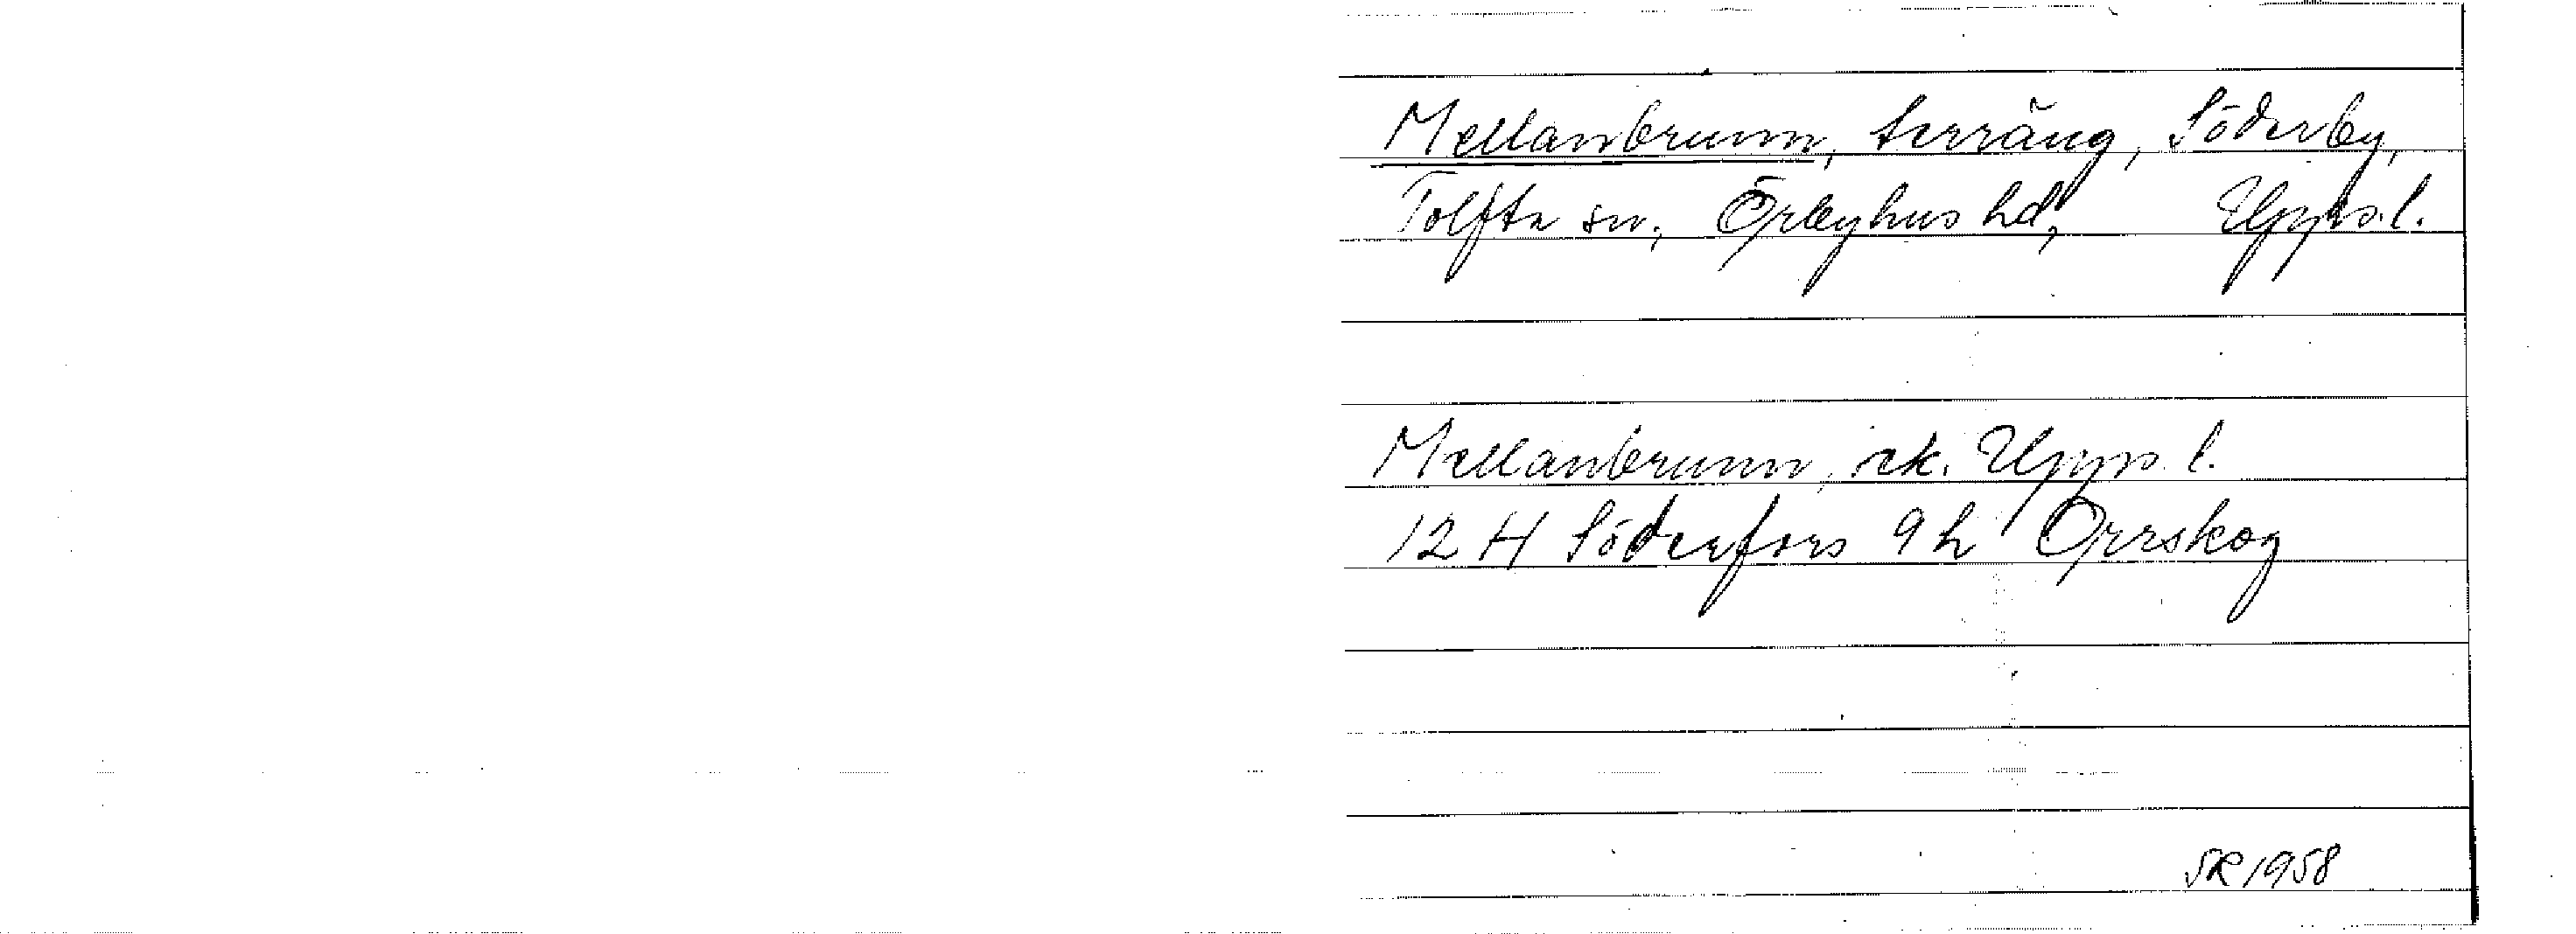 Mellanbrunn, terräng, Söderby,
Tolfta sn, Örbyhus hd, Upps.l.
Mellanbrunn, ek. Upps.l.
12 H Söderfors 9 h Orrskog
SR 1958